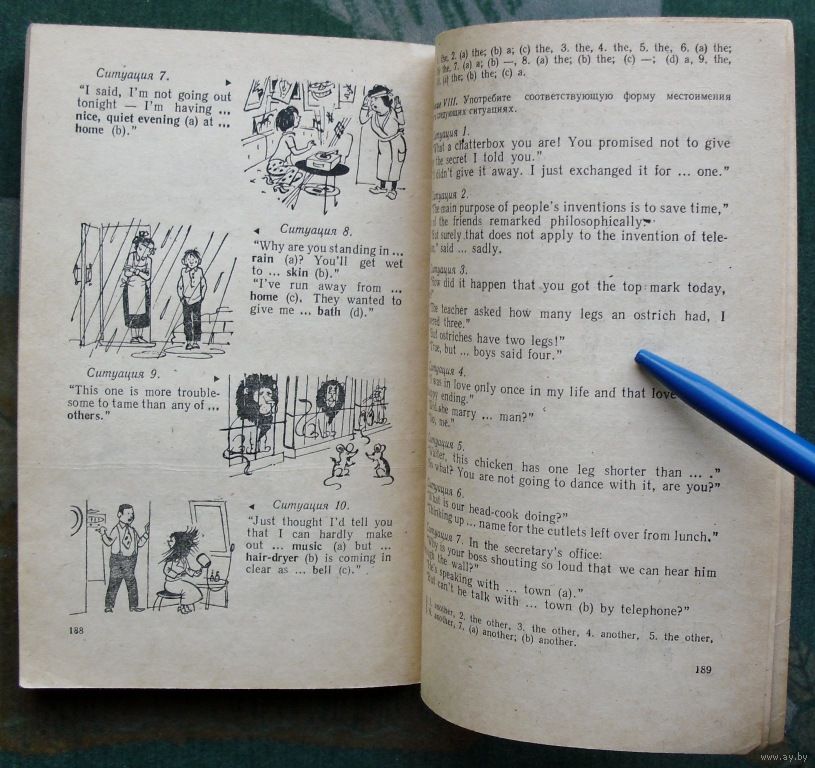 Ситуация 7.
"I said, I'm not going out
tonight — I'm having ...
nice, quiet evening (a) at ...
home (b)."
Ситуация 8.
"Why are you standing in ...
rain (a)? You'll get wet
to ... skin (b)."
"I've run away from ...
home (c). They wanted to
give me ... bath (d)."
Ситуация 9.
"This one is more trouble-
some to tame than any of ...
others."
Ситуация 10.
"Just thought I'd tell you
that I can hardly make
out ... music (a) but ...
hair-dryer (b) is coming in
clear as ... bell (c)."
188
the, 2. (a) the; (b) a; (c) the, 3. the, 4. the, 5. the, 6. (a) the;
the, 7. (a) a; (b) —, 8. (a) the; (b) the; (c) —; (d) a, 9. the,
(a) the; (b) the; (c) a.
VIII. Употребите соответствующую форму местоимения
следующих ситуациях.
Ситуация 1.
"What a chatterbox you are! You promised not to give
the secret I told you."
didn't give it away. I just exchanged it for ... one."
Ситуация 2.
"The main purpose of people's inventions is to save time,"
of the friends remarked philosophically.
"But surely that does not apply to the invention of tele-
said ... sadly.
Ситуация 3.
"How did it happen that you got the top mark today,
"The teacher asked how many legs an ostrich had, I
three."
ostriches have two legs!"
"True, but ... boys said four."
Ситуация 4.
was in love only once in my life and that love
ending."
she marry ... man?"
me."
Ситуация 5.
"Waiter, this chicken has one leg shorter than ... ."
"So what? You are not going to dance with it, are you?"
Ситуация 6.
"What is our head-cook doing?"
"Thinking up ... name for the cutlets left over from lunch."
Ситуация 7. In the secretary's office:
"Why is your boss shouting so loud that we can hear him
the wall?"
"He's speaking with ... town (a)."
"But can't he talk with ... town (b) by telephone?"
1. another, 2. the other, 3. the other, 4. another, 5. the other,
another, 7. (a) another; (b) another.
189
www.ay.by